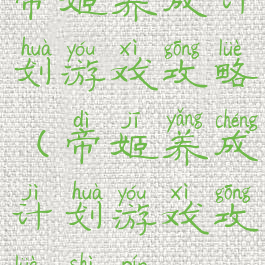 帝姬养成计
huà yóu xì gōng lüè
划游戏攻略
dì jī yǎng chéng
(帝姬养成
jì huà yóu xì gōng
计划游戏攻
lüè shì pín